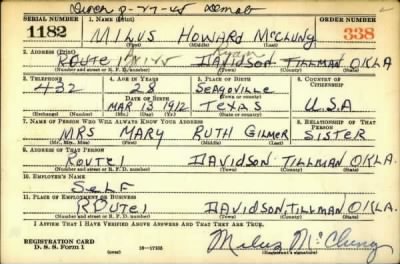 8-27-45
SERIAL NUMBER 1. NAME (Print) ORDER NUMBER
1182 MILUS HOWARD McCLUNG 338
(First) (Middle) (Last)
2. ADDRESS (Print)
ROUTE 1 DAVIDSON TILLMAN OKLA
(Number and street or R. F. D. number) (Town) (County) (State)
3. TELEPHONE 4. AGE IN YEARS 5. PLACE OF BIRTH 6. COUNTRY OF CITIZENSHIP
432 28 SEAGOVILLE
DATE OF BIRTH (Town or county)
MAR 13 1912 TEXAS U.S.A
(Exchange) (Number) (Mo.) (Day) (Yr.) (State or country)
7. NAME OF PERSON WHO WILL ALWAYS KNOW YOUR ADDRESS 8. RELATIONSHIP OF THAT PERSON
MRS MARY RUTH GILMER SISTER
(Mr., Mrs., Miss) (First) (Middle) (Last)
9. ADDRESS OF THAT PERSON
ROUTE 1 DAVIDSON TILLMAN OKLA.
(Number and street or R. F. D. number) (Town) (County) (State)
10. EMPLOYER'S NAME
SELF
11. PLACE OF EMPLOYMENT OR BUSINESS
ROUTE 1 DAVIDSON TILLMAN OKLA.
(Number and street or R. F. D. number) (Town) (County) (State)
I AFFIRM THAT I HAVE VERIFIED ABOVE ANSWERS AND THAT THEY ARE TRUE.
REGISTRATION CARD
D. S. S. Form 1 16—17105 Milus McClung
(Registrant's signature)